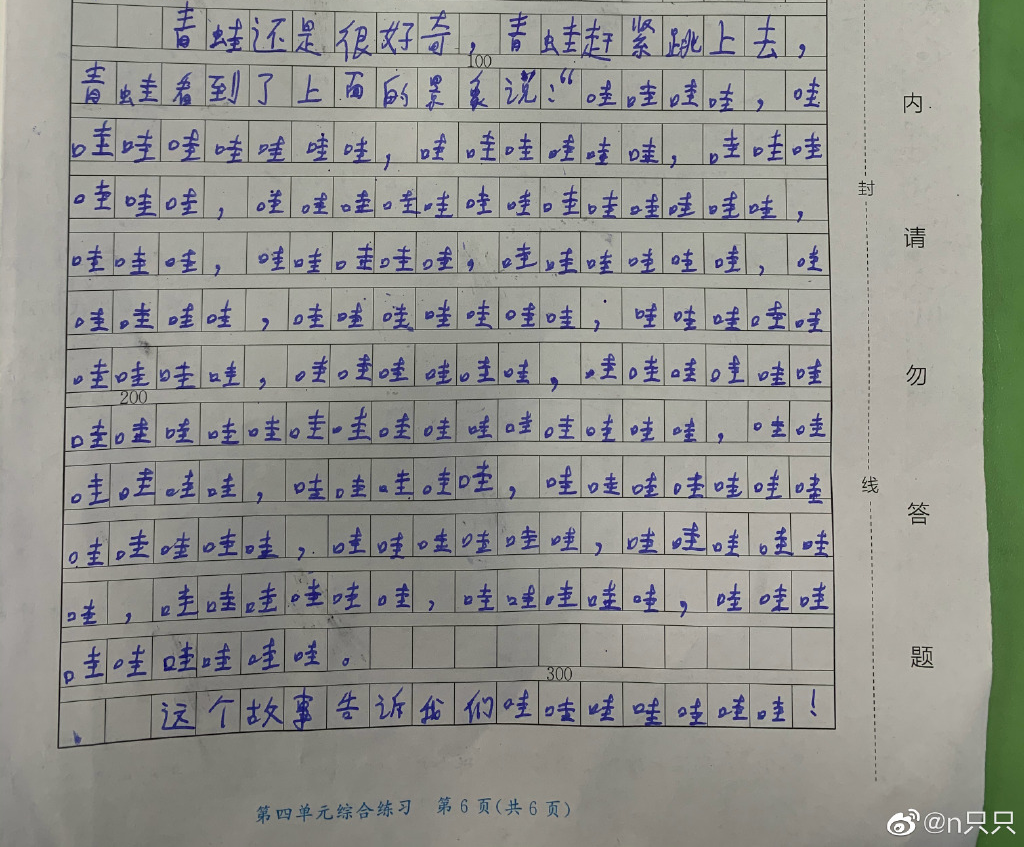 青蛙还是很好奇，青蛙赶紧跳上去，
100
青蛙看到了上面的景象说：“哇哇哇哇，哇
哇哇哇哇哇哇哇，哇哇哇哇哇哇，哇哇哇
哇哇哇，哇哇哇哇哇哇哇哇哇哇哇哇哇，
哇哇哇，哇哇哇哇哇，哇哇哇哇哇哇，哇
哇哇哇哇，哇哇哇哇哇哇哇，哇哇哇哇哇
哇哇哇哇，哇哇哇哇哇哇，哇哇哇哇哇哇
200
哇哇哇哇哇哇哇哇哇哇哇哇哇哇哇，哇哇
哇哇哇哇，哇哇哇哇哇，哇哇哇哇哇哇哇
哇哇哇哇哇，哇哇哇哇哇哇，哇哇哇哇哇
哇，哇哇哇哇哇哇，哇哇哇哇哇，哇哇哇
哇哇哇哇哇哇。
300
这个故事告诉我们哇哇哇哇哇哇哇！
第四单元综合练习 第6页(共6页)
封
线
内
请
勿
答
题
@n只只